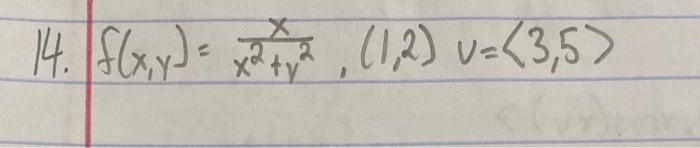 14. f(x,y) = x/(x²+y²), (1,2) v=<3,5>